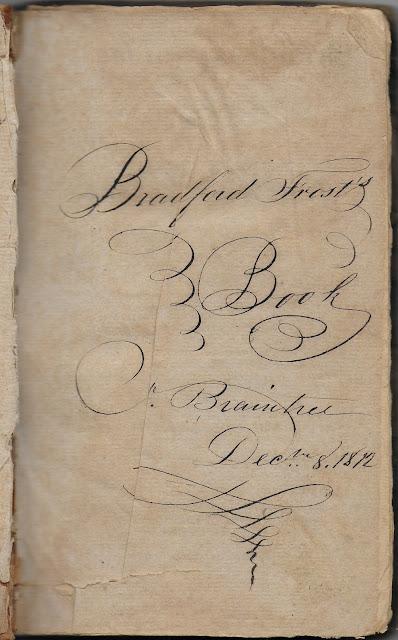 Bradford Frost's
Book
Braintree
Dec.br 8. 1812